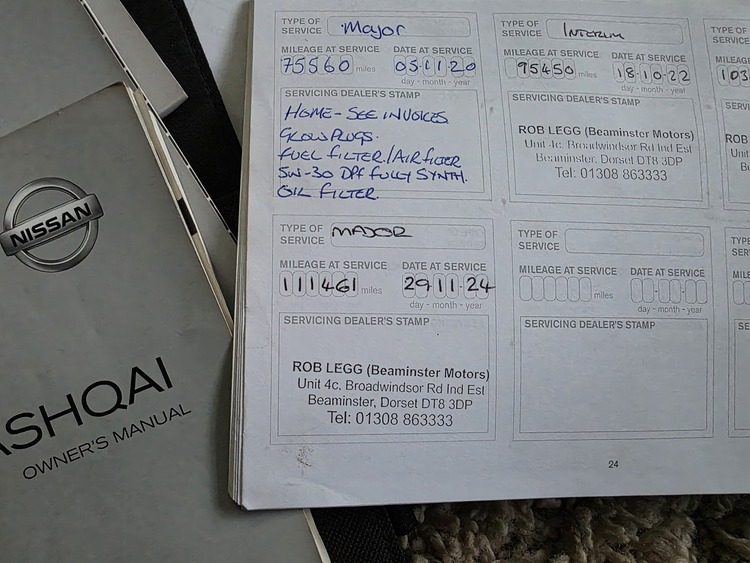 TYPE OF SERVICE Major
MILEAGE AT SERVICE DATE AT SERVICE
75560 miles 05.11.20
day - month - year
SERVICING DEALER'S STAMP
HOME - SEE INVOICES
GLOW PLUGS.
FUEL FILTER/AIR FILTER
5W-30 DPF FULLY SYNTH.
OIL FILTER.
TYPE OF SERVICE INTERIM
MILEAGE AT SERVICE DATE AT SERVICE
95450 miles 18.10.22
day - month - year
SERVICING DEALER'S STAMP
ROB LEGG (Beaminster Motors)
Unit 4c, Broadwindsor Rd Ind Est
Beaminster, Dorset DT8 3DP
Tel: 01308 863333
TYPE OF SERVICE MAJOR
MILEAGE AT SERVICE DATE AT SERVICE
111461 miles 29.11.24
day - month - year
SERVICING DEALER'S STAMP
ROB LEGG (Beaminster Motors)
Unit 4c, Broadwindsor Rd Ind Est
Beaminster, Dorset DT8 3DP
Tel: 01308 863333
TYPE OF SERVICE
MILEAGE AT SERVICE DATE AT SERVICE
miles
day - month - year
SERVICING DEALER'S STAMP
24
TYPE OF SERVICE
MILEAGE
103
SERVICING
ROB
Unit
TYPE OF SERVICE
MILEAGE
SERVICING
NISSAN
ASHQAI
OWNER'S MANUAL